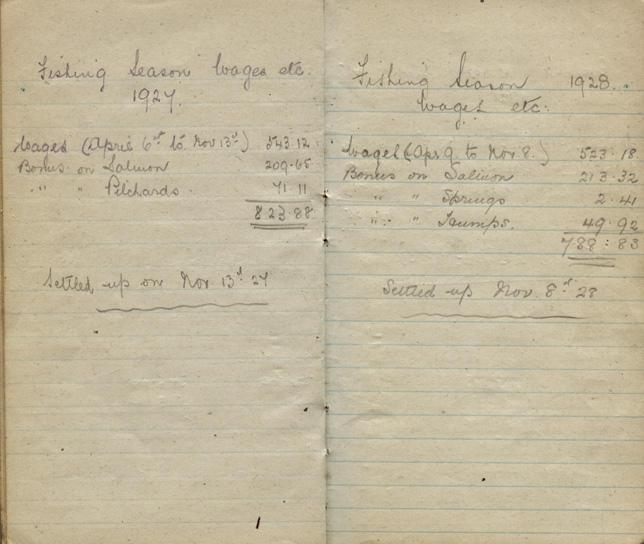 Fishing Season Wages etc.
1927.
Wages (April 6th to Nov 13th) 543.12
Bonus on Salmon 209.65
" " Pilchards 71.11
823.88
Settled up on Nov 13th 27
Fishing Season 1928.
Wages etc.
Wages (Apr 9. to Nov 8.) 523.18
Bonus on Salmon 213.32
" " Springs 2.41
" " Humps. 49.92
788:83
Settled up Nov. 8th 28